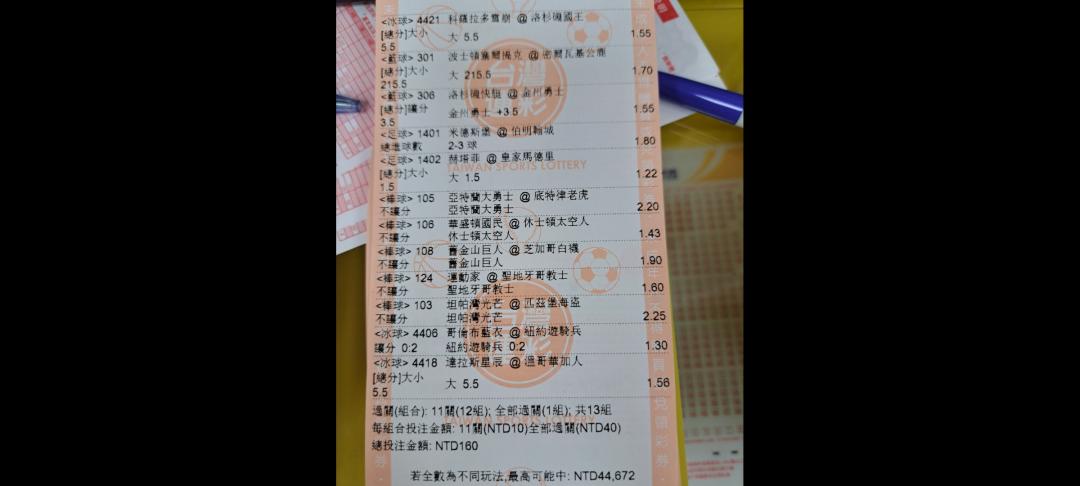 <冰球> 4421 科羅拉多雪崩 @ 洛杉磯國王
[總分]大小 大 5.5 1.55
5.5
<籃球> 301 波士頓塞爾提克 @ 密爾瓦基公鹿
[總分]大小 大 215.5 1.70
215.5
<籃球> 306 洛杉磯快艇 @ 金州勇士
[總分]讓分 金州勇士 +3.5 1.55
3.5
<足球> 1401 米德斯堡 @ 伯明翰城
總進球數 2-3 球 1.80
<足球> 1402 赫塔菲 @ 皇家馬德里
[總分]大小 大 1.5 1.22
1.5
<棒球> 105 亞特蘭大勇士 @ 底特律老虎
不讓分 亞特蘭大勇士 2.20
<棒球> 106 華盛頓國民 @ 休士頓太空人
不讓分 休士頓太空人 1.43
<棒球> 108 舊金山巨人 @ 芝加哥白襪
不讓分 舊金山巨人 1.90
<棒球> 124 運動家 @ 聖地牙哥教士
不讓分 聖地牙哥教士 1.60
<棒球> 103 坦帕灣光芒 @ 匹茲堡海盜
不讓分 坦帕灣光芒 2.25
<冰球> 4406 哥倫布藍衣 @ 紐約遊騎兵
讓分 0:2 紐約遊騎兵 0:2 1.30
<冰球> 4418 達拉斯星辰 @ 溫哥華加人
[總分]大小 大 5.5 1.56
5.5
過關(組合): 11關(12組); 全部過關(1組); 共13組
每組合投注金額: 11關(NTD10)全部過關(NTD40)
總投注金額: NTD160
若全數為不同玩法,最高可能中: NTD44,672
TAIWAN SPORTS LOTTERY
TAIWAN SPORTS LOTTERY